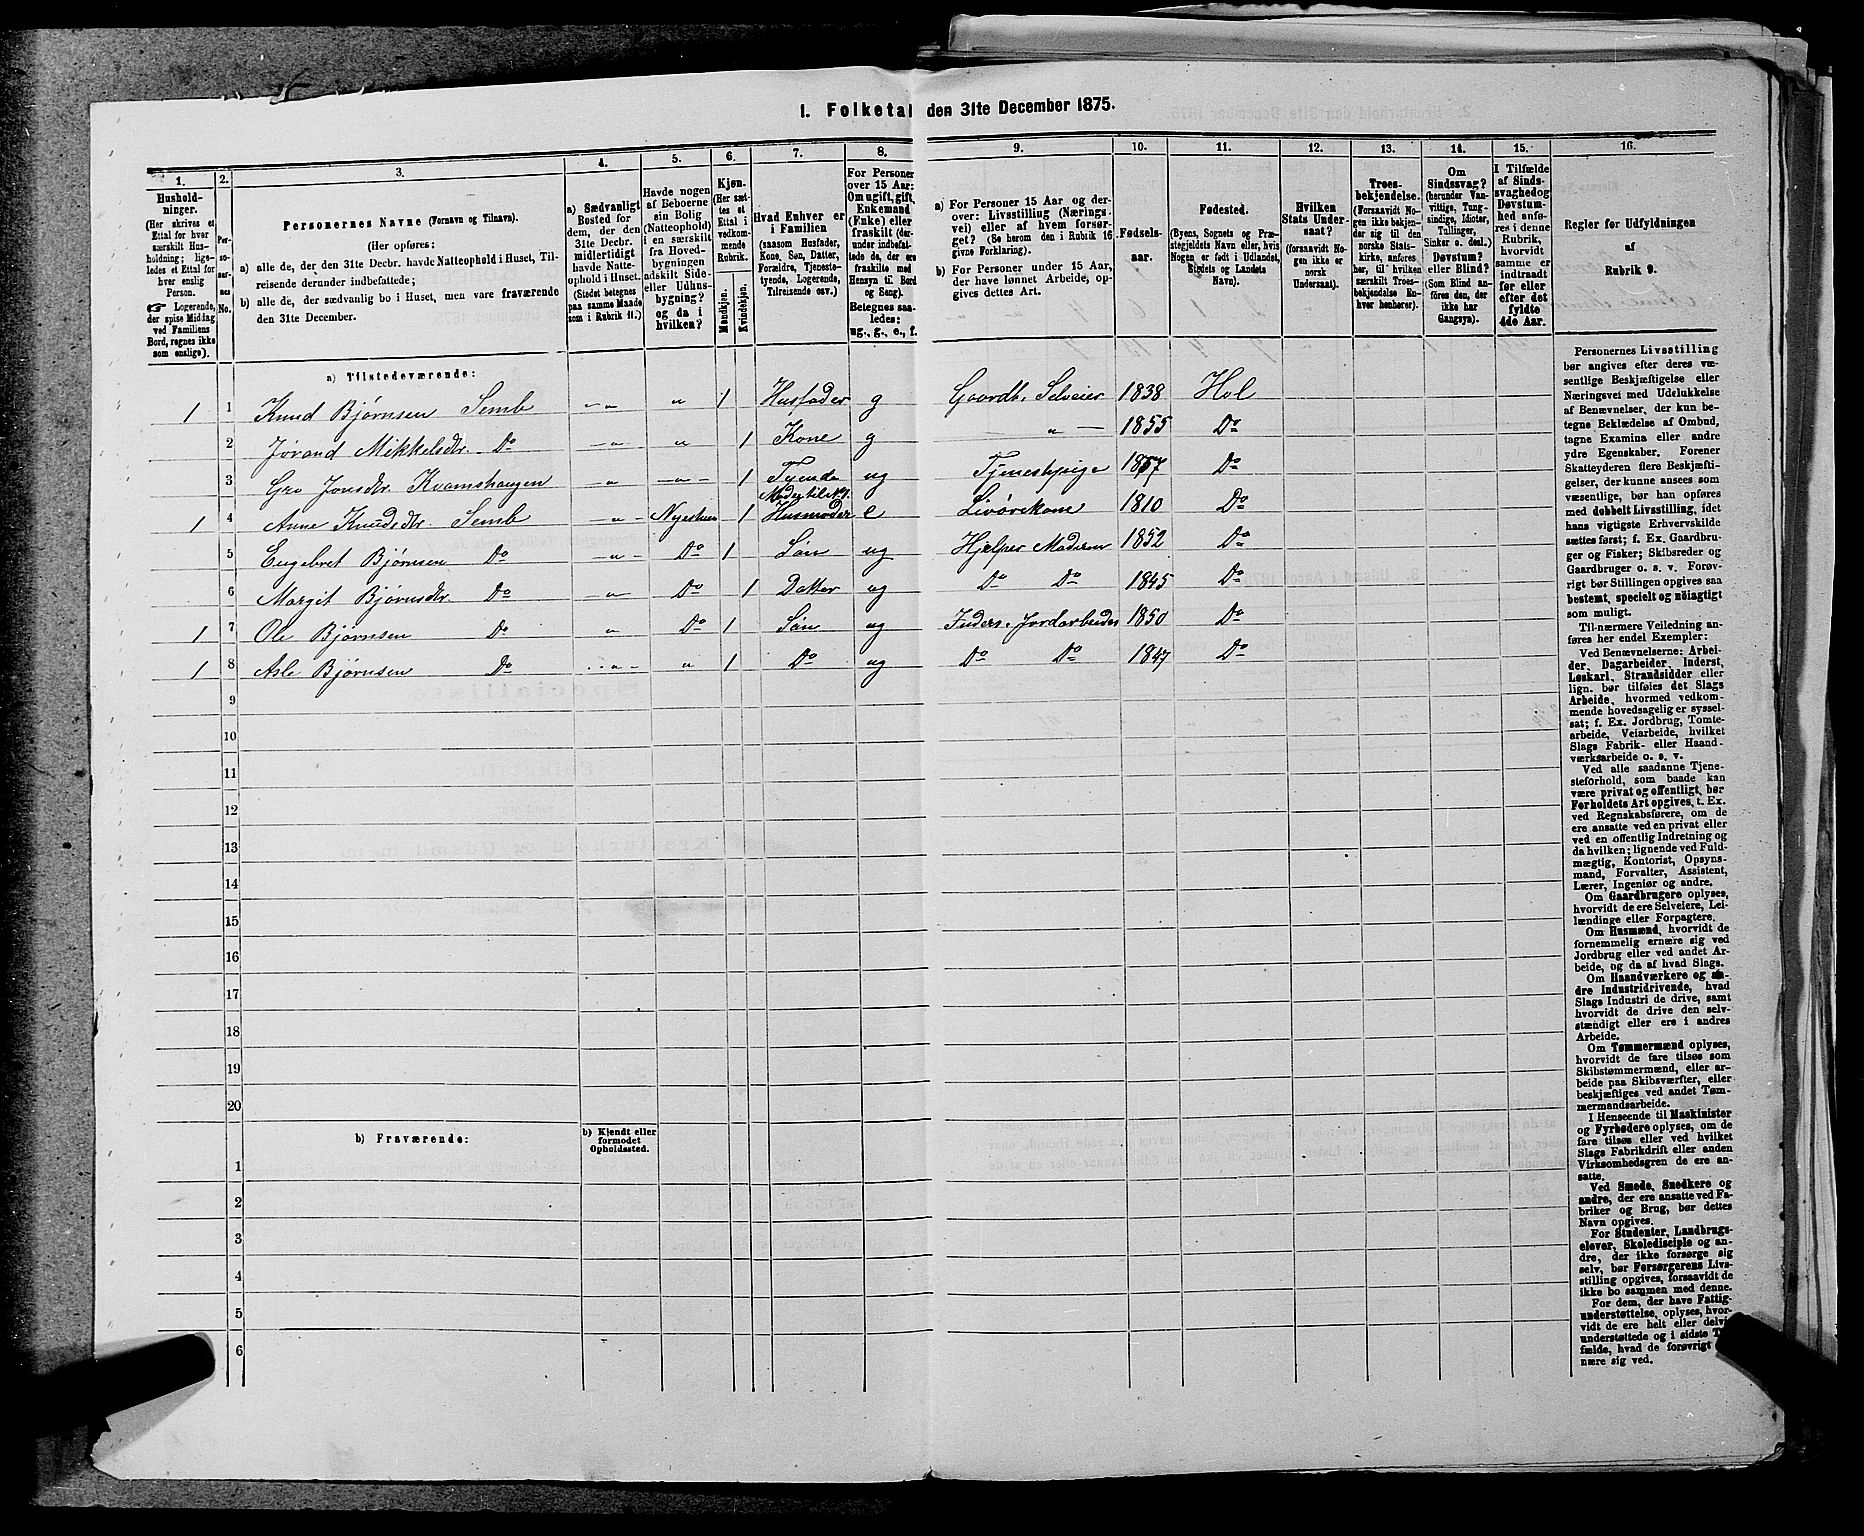 1. Folketal den 31te December 1875.
1. 2. 3. 4. 5. 6. 7. 8. 9. 10. 11. 12. 13. 14. 15. 16.
Husholdninger.
(Her skrives et
Ettal for hver
særskilt Husholdning;
ligeledes et Ettal for
hver enslig
Person.
☞ Logerende,
der spise Middag
ved Familiens
Bord, regnes ikke
som enslige).
Personernes No.
Personernes Navne (Fornavn og Tilnavn).
(Her opføres:
a) alle de, der den 31te Decbr. havde Natteophold i Huset, Tilreisende derunder indbefattede;
b) alle de, der sædvanlig bo i Huset, men vare fraværende
den 31te December.
a) Sædvanligt
Bosted for
dem, der den
31te Decbr.
midlertidigt
havde Natteophold i Huset.
(Stedet betegnes
paa samme Maade
som i Rubrik 11.)
Havde nogen
af Beboerne
sin Bolig
(Natteophold)
i en særskilt
fra Hovedbygningen
adskilt Side-
eller Udhusbygning?
og da i
hvilken?
Kjøn.
(Her sættes et
Ettal i
vedkommende
Rubrik.
Mandkjøn. Kvindekjøn.
Hvad Enhver er
i Familien
(saasom Husfader,
Kone, Søn, Datter,
Forældre, Tjenestetyende, Logerende,
Tilreisende osv.)
For Personer
over 15 Aar:
Om ugift, gift,
Enkemand
(Enke) eller
fraskilt (derunder indbefattede de, der ere
fraskilte med
Hensyn til Bord
og Seng).
Betegnes saaledes:
ug., g., e., f.
a) For Personer 15 Aar og derover: Livsstilling (Næringsvei) eller af hvem forsørget? (Se herom den i Rubrik 16
givne Forklaring).
b) For Personer under 15 Aar,
der have lønnet Arbeide, opgives dettes Art.
Fødselsaar.
Fødested.
(Byens, Sognets og Præstegjeldets Navn eller, hvis
Nogen er født i Udlandet,
Stedets og Landets
Navn).
Hvilken
Stats Undersaat?
(forsaavidt Nogen ikke er
norsk
Undersaat).
Troesbekjendelse.
(Forsaavidt Nogen ikke bekjender sig til den
norske Statskirke, anføres her, til hvilken
særskilt Troesbekjendelse Enhver henhører).
Om
Sindssvag?
(herunder Vanvittige, Tungsindige, Idioter,
Tullinger,
Sinker o. desl.)
Døvstum?
eller Blind?
(Som Blind anføres den, der
ikke har
Gangsyn).
I Tilfælde
af Sindssvaghed og
Døvstumhed anføres i denne
Rubrik,
hvorvidt
samme er
indtraadt
før eller
efter det
fyldte
4de Aar.
Regler for Udfyldningen
af
Rubrik 9.
a) Tilstedeværende:
1 1 Knud Bjørnsen Semb — „ „ 1 Husfader g Gaardb. Selveier 1838 Hol
2 Jørand Mikkelsdr. Do — „ „ 1 Kone g — „ — 1855 Do
3 Gro Jonsdtr Kvamshaugen — „ — „ — 1 Tyende ug Tjenestpige 1857 Do
Moder til No 1.
1 4 Anne Knudsdr. Semb — „ — 1 Husmoder e 1810 Do
5 Engebret Bjørnsen Do — „ — Do 1 Søn ug Hjelper Moderen 1852 Do
6 Margit Bjørnsdr. Do — „ Do 1 Datter ug Do Do 1845 Do
1 7 Ole Bjørnsen Do „ Do 1 Søn ug Inders. Jordarbeider 1850 Do
1 8 Asle Bjørnsen Do — „ — „ 1 Do ug Do Do 1847 Do
9
10
11
12
13
14
15
16
17
18
19
20
b) Fraværende: b) Kjendt eller
formodet
Opholdssted.
1
2
3
4
5
6
Personernes Livsstilling
bør angives efter deres væsentlige Beskjæftigelse eller
Næringsvei med Udelukkelse
af Benævnelser, der kun betegne Beklædelse af Ombud,
tagne Examina eller andre
ydre Egenskaber. Forener
Skatteyderen flere Beskjæftigelser, der kunne ansees som
væsentlige, bør han opføres
med dobbelt Livsstilling, idet
hans vigtigste Erhvervskilde
sættes først; f. Ex. Gaardbruger og Fisker; Skibsreder og
Gaardbruger o. s. v. Forøvrigt bør Stillingen opgives saa
bestemt, specielt og nøiagtigt
som muligt.
Til nærmere Veiledning anføres her endel Exempler:
Ved Benævnelserne: Arbeider, Dagarbeider, Inderst,
Løskarl, Strandsidder eller
lign. bør tilføies det Slags
Arbeide, hvormed vedkommende hovedsagelig er sysselsat; f. Ex. Jordbrug, Tomtearbeide, Veiarbeide, hvilket
Slags Fabrik- eller Haandværksarbeide o. s. v.
Ved alle saadanne Tjenesteforhold, som baade kan
være privat og offentligt, bør
Forholdets Art opgives, t. Ex.
ved Regnskabsførere, om de
ere ansatte ved en privat eller
ved en offentlig Indretning og
da hvilken; lignende ved Fuldmægtig, Kontorist, Opsynsmand, Forvalter, Assistent,
Lærer, Ingeniør og andre.
Om Gaardbrugere oplyses,
hvorvidt de ere Selveiere, Leilændinge eller Forpagtere.
Om Husmænd, hvorvidt de
fornemmelig ernære sig ved
Jordbrug eller ved andet Arbeide, og da af hvad Slags.
Om Haandværkere og andre Industridrivende, hvad
Slags Industri de drive, samt
hvorvidt de drive den selvstændigt eller ere i andres
Arbeide.
Om Tømmermænd oplyses,
hvorvidt de fare tilsøs som
Skibstømmermænd, eller arbeide paa Skibsværfter, eller
beskjæftiges ved andet Tømmermandsarbeide.
I Henseende til Maskinister
og Fyrbødere oplyses, om de
fare tilsøs eller ved hvilket
Slags Fabrikdrift eller anden
Virksomhedsgren de ere ansatte.
Ved Smede, Snedkere og
andre, der ere ansatte ved Fabriker og Brug, bør dettes
Navn opgives.
For Studenter, Landbrugselever, Skoledisciple og andre, der ikke forsørge sig
selv, bør Forsørgerens Livsstilling opgives, forsaavidt de
ikke bo sammen med denne.
For dem, der have Fattigunderstøttelse, oplyses, hvorvidt de ere helt eller delvis
understøttede og i sidste
fælde, hvad de forøvrigt
nære sig ved.